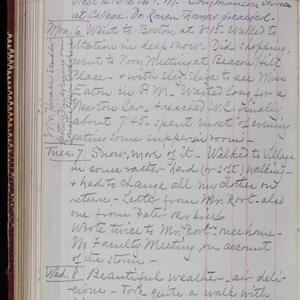 at College. Dr. Loren Thomas preached.
Mon. 6 Went to Boston at 8.15. Walked to
Station in deep snow. Did shopping,
went to Noon Meeting at Beacon Hill
Place - & with to see Miss
Eaton in P.M. Waited long for a
Newton Car - & reached W.C. finally
about 7.45. Spent most of evening
eating some supper in room -
Tues. 7 Snow, more of it - Walked to Village
in some rather hard (or soft) walking -
& had to change all my clothes on
return - Letter from Mr. Root - also
one from Pater
Wrote twice to Mr. Root - once home -
No Faculty Meeting on account
of the storm -
Wed. 8. Beautiful weather - air deli-
cious - Took quite a walk with